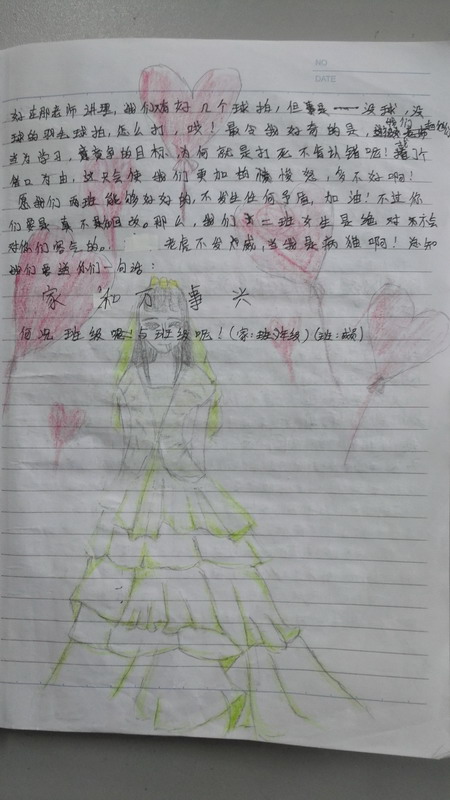 NO
DATE
好在那老师讲理，我们有好几个球拍，但事实——没球，没
球的那么球拍，怎么打，哎！最令我好奇的是，你们
当为学习，竞赛争的目标，为何就是打死不肯认错呢！
借口为由，这只会使我们更加的愤怒，多不好啊！
愿我们两班能够好好的，不发生任何矛盾，加油！不过你
们要是真不知悔改。那么，我们二班女生是绝对不会
对你们客气的。老虎不发威，当我是病猫啊！
我们要送你们一句话：
家和万事兴
何况班级呢！与班级呢！(家：班级)